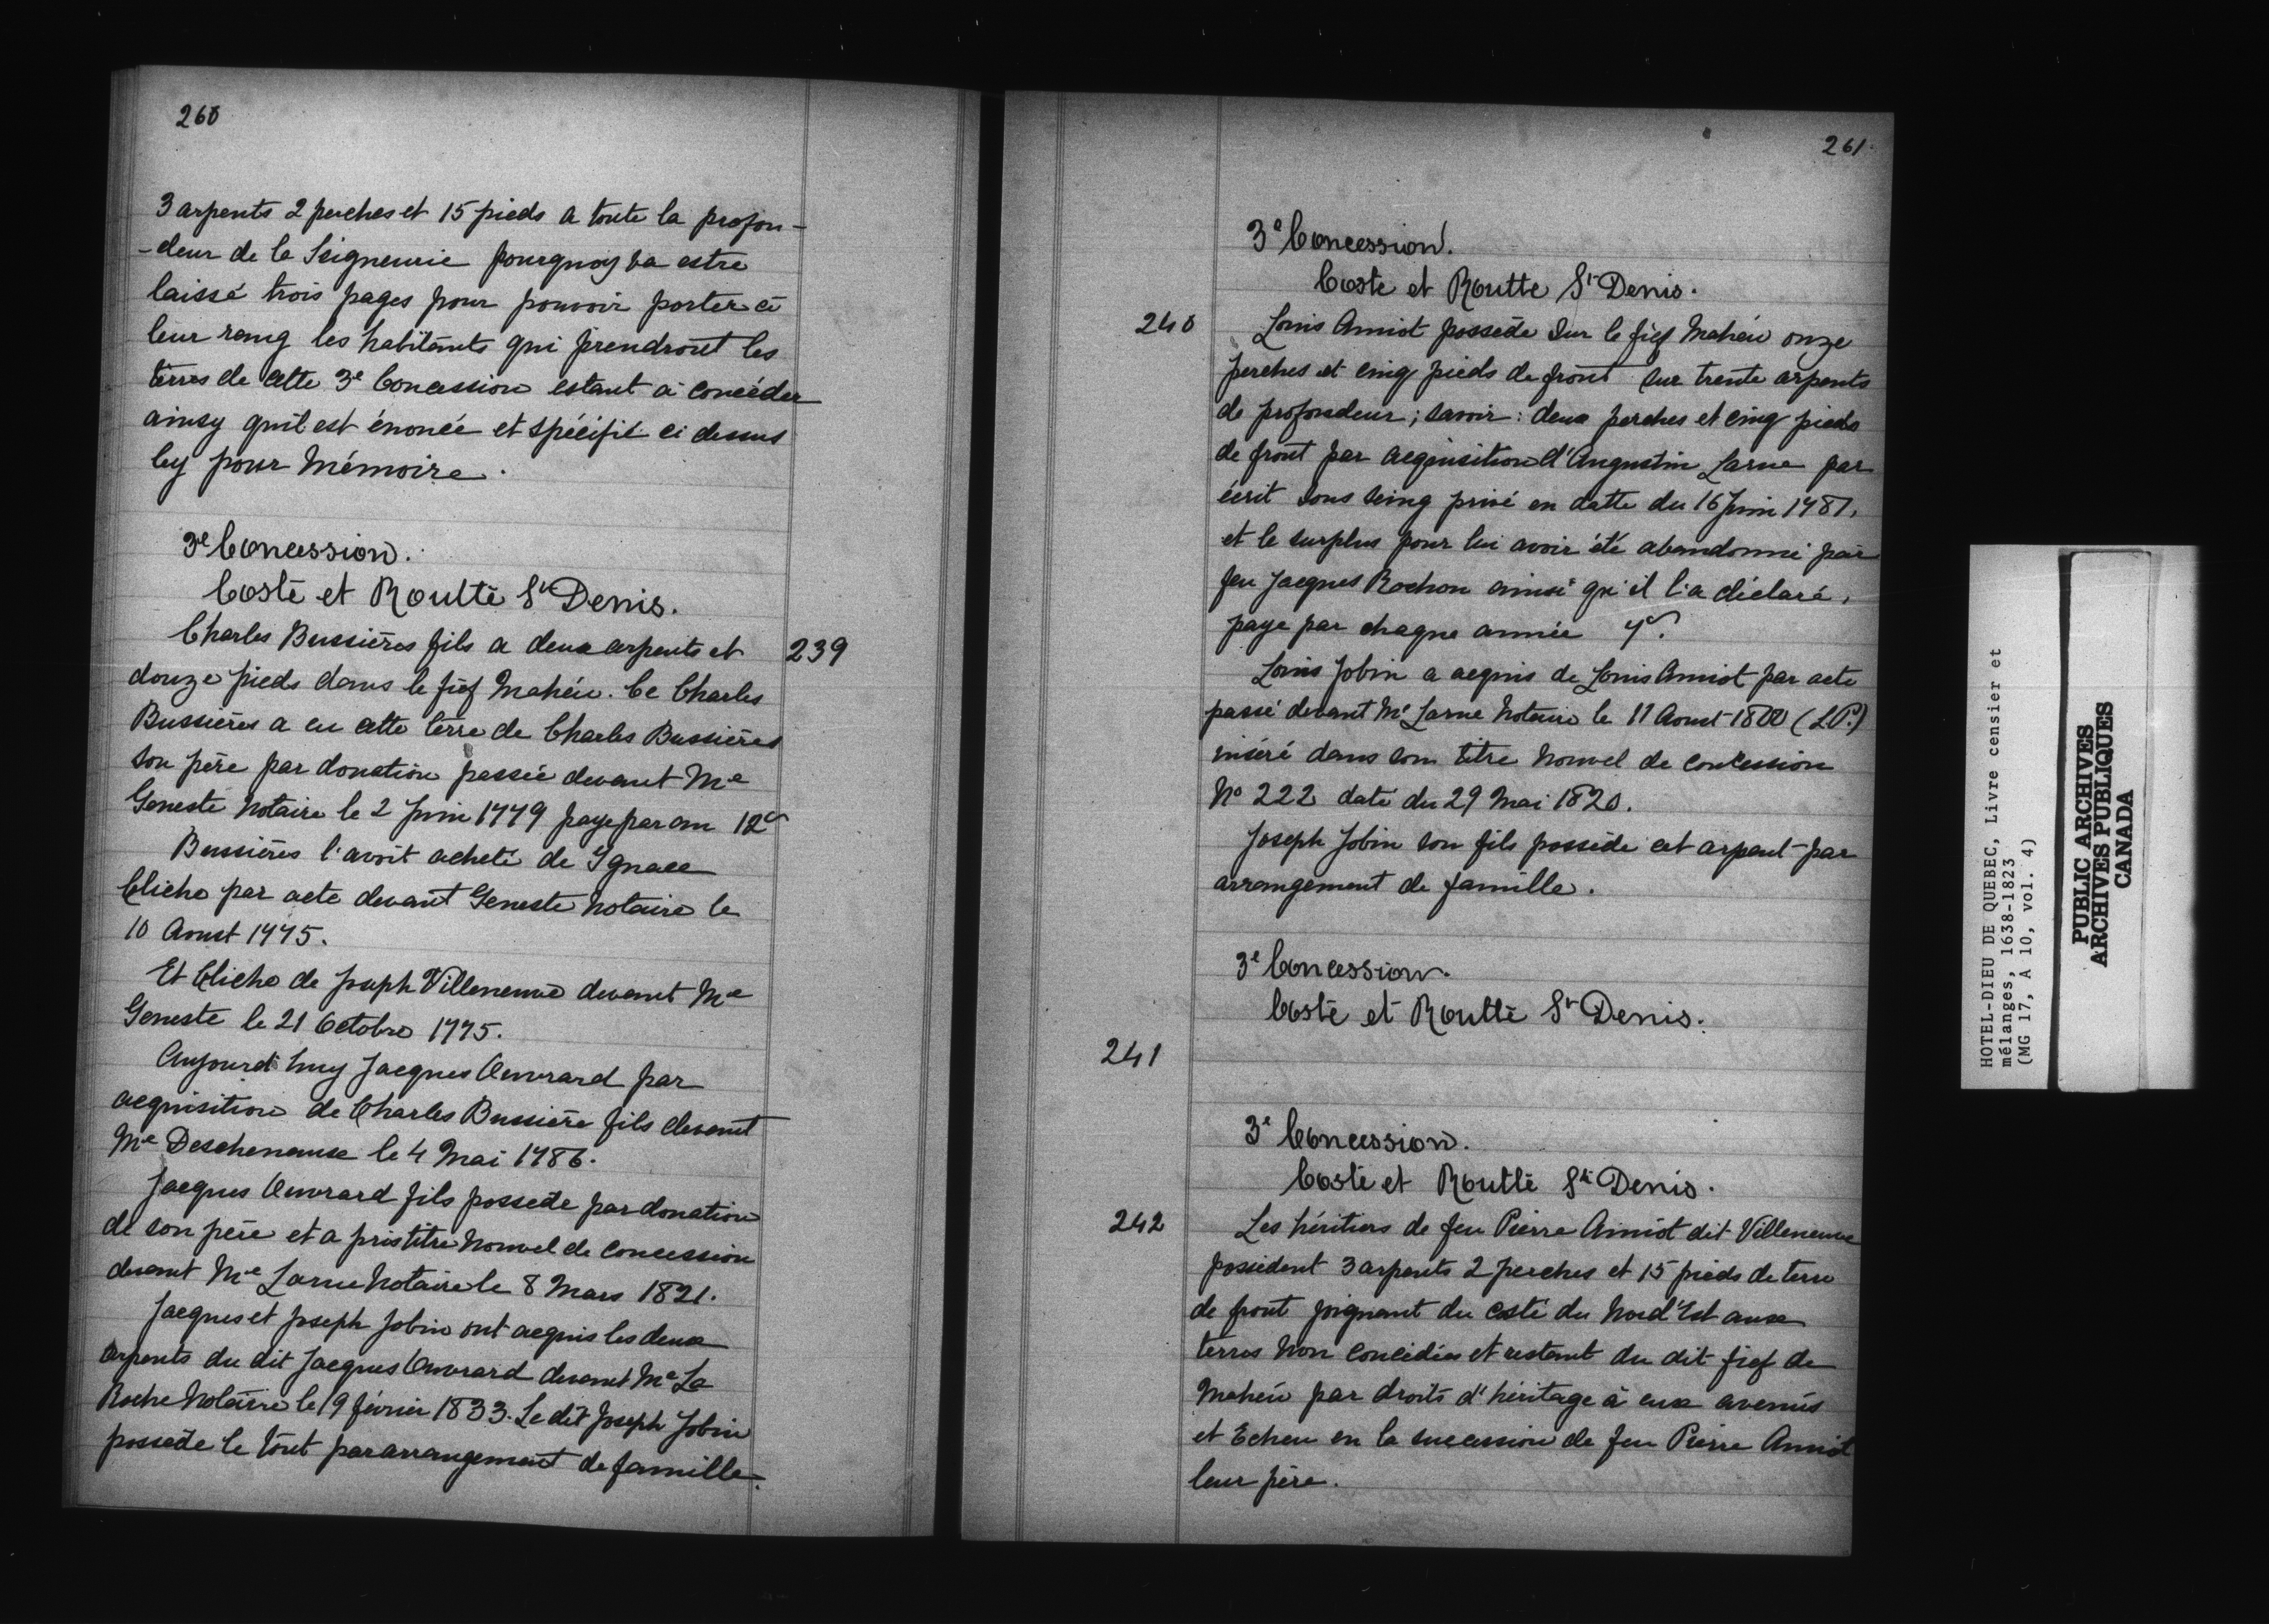 260
3 arpents 2 perches et 15 pieds a toute la profon-
-deur de la Seigneurie pourquoy va estre
laissé trois pages pour pouvoir porter à
leur rang les habitants qui prendront les
terres de cette 3e Concession estant à concéder
ainsy qu'il est énoncé et spécifié ci dessus
Cy pour Mémoire.
3e Concession.
Coste et Routte St Denis.
239
Charles Bussières fils a deux arpents et
douze pieds dans le fief Mahéu. Ce Charles
Bussières a eu cette terre de Charles Bussières
son père par donation passée devant Me
Geneste Notaire le 2 Juin 1779 paye par an 12s
Bussières l'avoit acheté de Ignace
Cliche par acte devant Geneste Notaire le
10 Aoust 1775.
Et Cliche de Joseph Villeneuve devant Me
Geneste le 21 Octobre 1775.
Aujourd'huy Jacques Ouvrard par
acquisition de Charles Bussière fils devant
Me Deschenaux le 4 Mai 1786.
Jacques Ouvrard fils possede par donation
de son père et a pris titre Nouvel de Concession
devant Me Larue Notaire le 8 Mars 1821.
Jacques et Joseph Jobin ont acquis les deux
arpents du dit Jacques Ouvrard devant Me La
Roche Notaire le 19 février 1833. Le dit Joseph Jobin
possede le tout par arrangement de famille.
261
3e Concession.
Coste et Routte St Denis.
240
Louis Amiot possede sur le fief Mahéu onze
perches et cinq pieds de front sur trente arpents
de profondeur; savoir: deux perches et cinq pieds
de front par acquisition d'Augustin Larue par
écrit sous seing privé en datte du 16 Juin 1787,
et le surplus pour lui avoir été abandonné par
feu Jacques Rochon ainsi qu'il l'a déclaré,
paye par chaque année 7s.
Louis Jobin a acquis de Louis Amiot par acte
passé devant Me Larue Notaire le 11 Aoust 1800 (L.P.)
inséré dans son titre Nouvel de concession
No 222 daté du 29 Mai 1820.
Joseph Jobin son fils possède cet arpent par
arrangement de famille.
3e Concession.
Coste et Routte St Denis.
241
3e Concession.
Coste et Routte St Denis.
242
Les héritiers de feu Pierre Amiot dit Villeneuve
possedent 3 arpents 2 perches et 15 pieds de terre
de front joignant du costé du Nord'Est aux
terres Non Concédées et restant du dit fief de
Mahéu par droits d'héritage à eux avenus
et Echeu en la succession de feu Pierre Amiot
leur père.
HOTEL-DIEU DE QUEBEC, Livre censier et
mélanges, 1638-1823
(MG 17, A 10, vol. 4)
PUBLIC ARCHIVES
ARCHIVES PUBLIQUES
CANADA